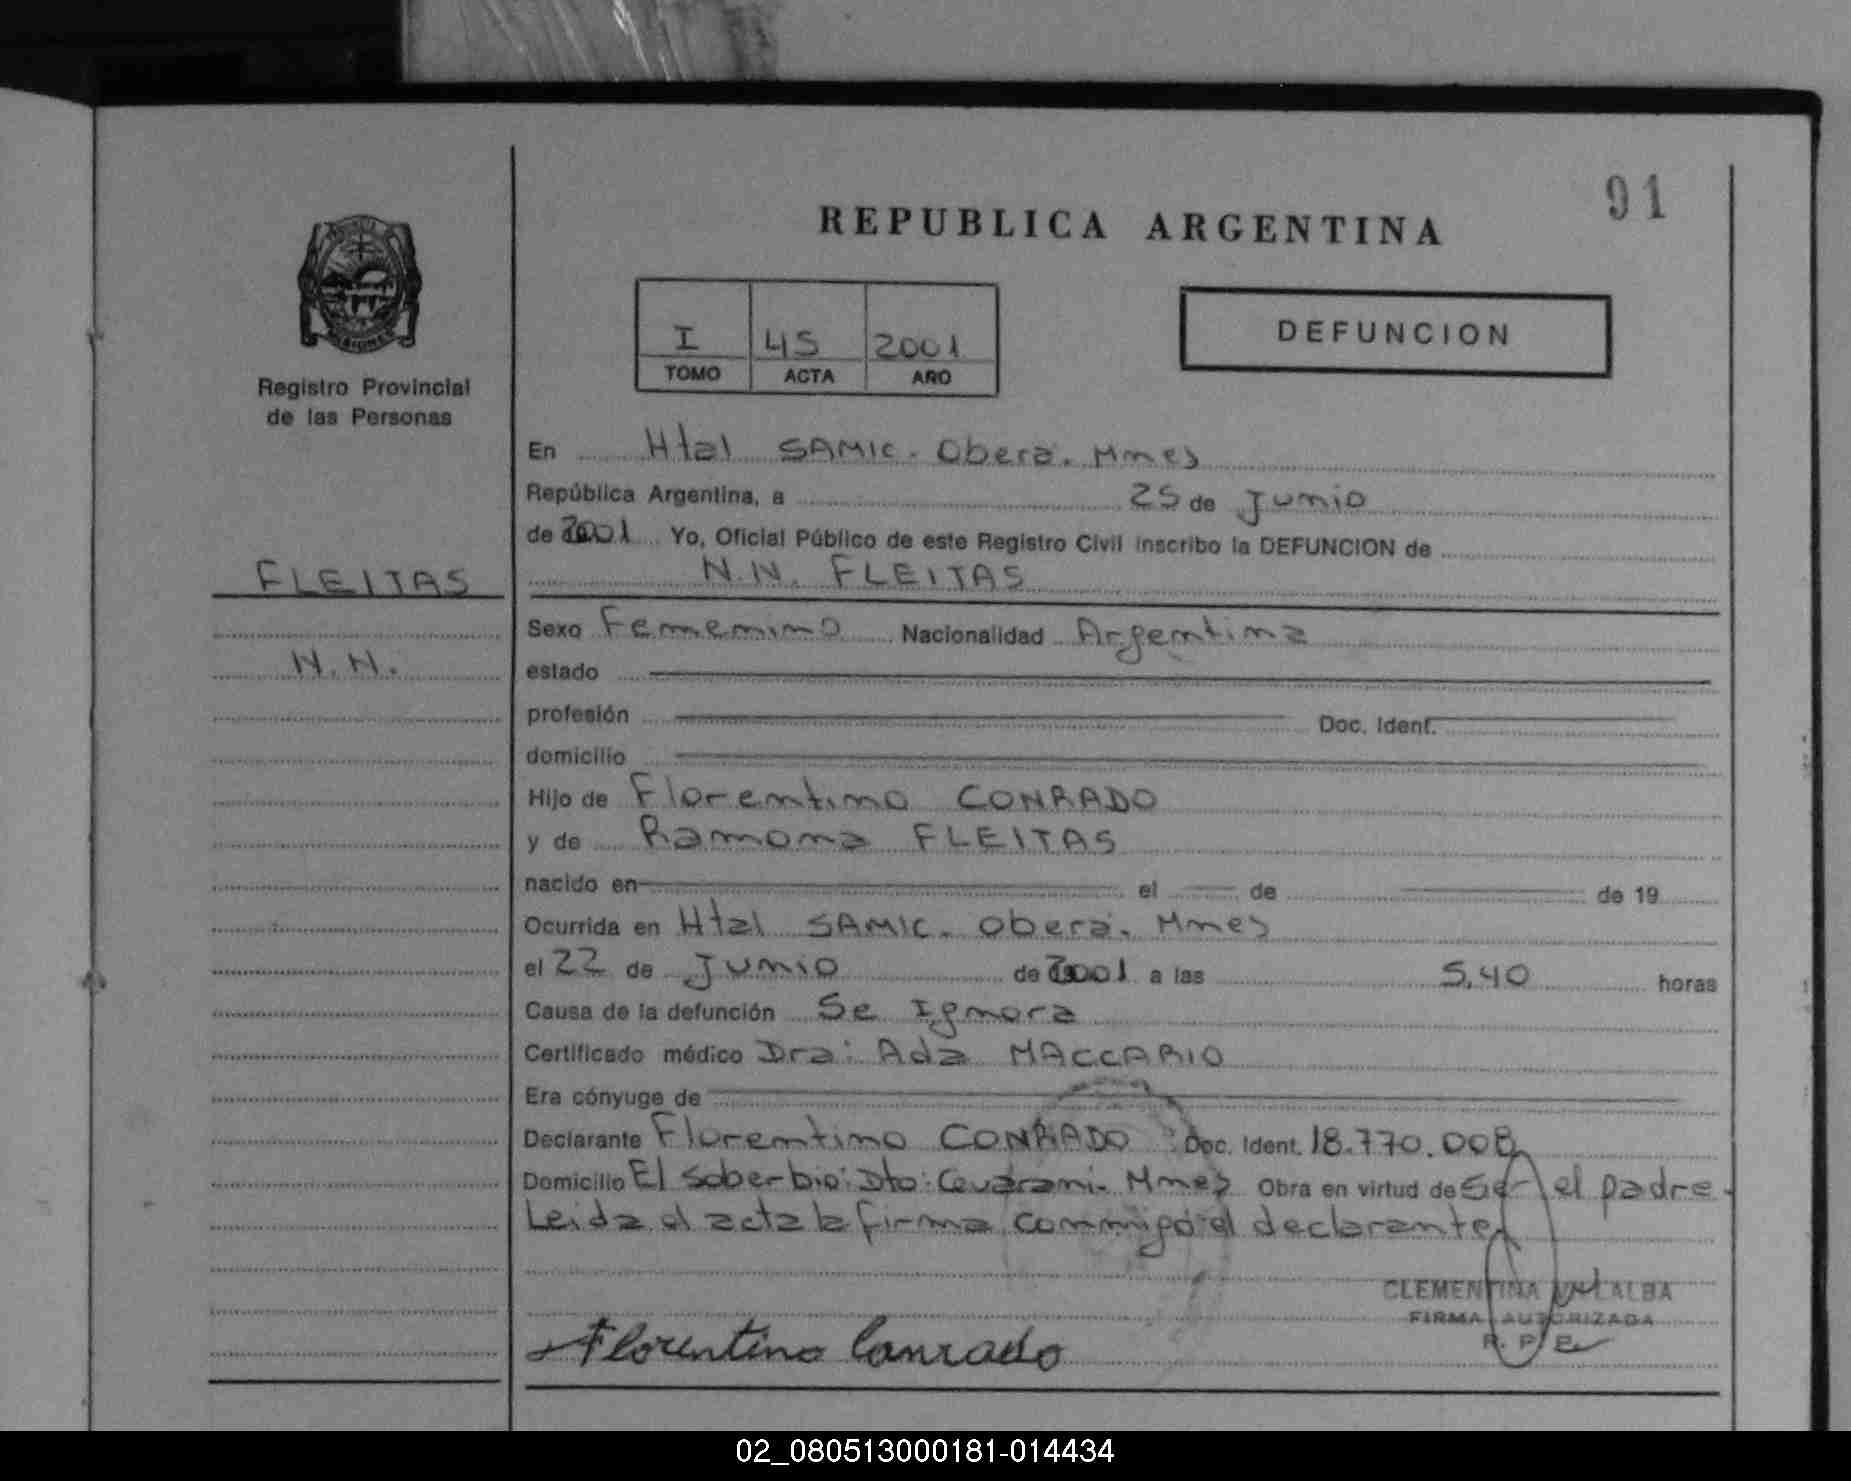 91
REPUBLICA ARGENTINA
I 45 2001
TOMO ACTA AÑO
DEFUNCION
MISIONES
Registro Provincial
de las Personas
FLEITAS
N.N.
En Htal SAMIC. Oberá. Mnes
República Argentina, a 25 de Junio
de 2001 Yo, Oficial Público de este Registro Civil inscribo la DEFUNCION de
N.N. FLEITAS
Sexo Femenino Nacionalidad Argentina
estado
profesión Doc. Ident.
domicilio
Hijo de Florentino CONRADO
y de Ramona FLEITAS
nacido en el de de 19
Ocurrida en Htal SAMIC. Oberá. Mnes
el 22 de Junio de 2001 a las 5,40 horas
Causa de la defunción Se Ignora
Certificado médico Dra: Ada MACCARIO
Era cónyuge de
Declarante Florentino CONRADO Doc. Ident. 18.770.008
Domicilio El Soberbio: Dto: Guarani. Mnes Obra en virtud de Ser el padre.
Leida el acta la firma conmigo el declarante
CLEMENTINA VILLALBA
FIRMA AUTORIZADA
R. P. P.
Florentino Conrado
02_080513000181-014434